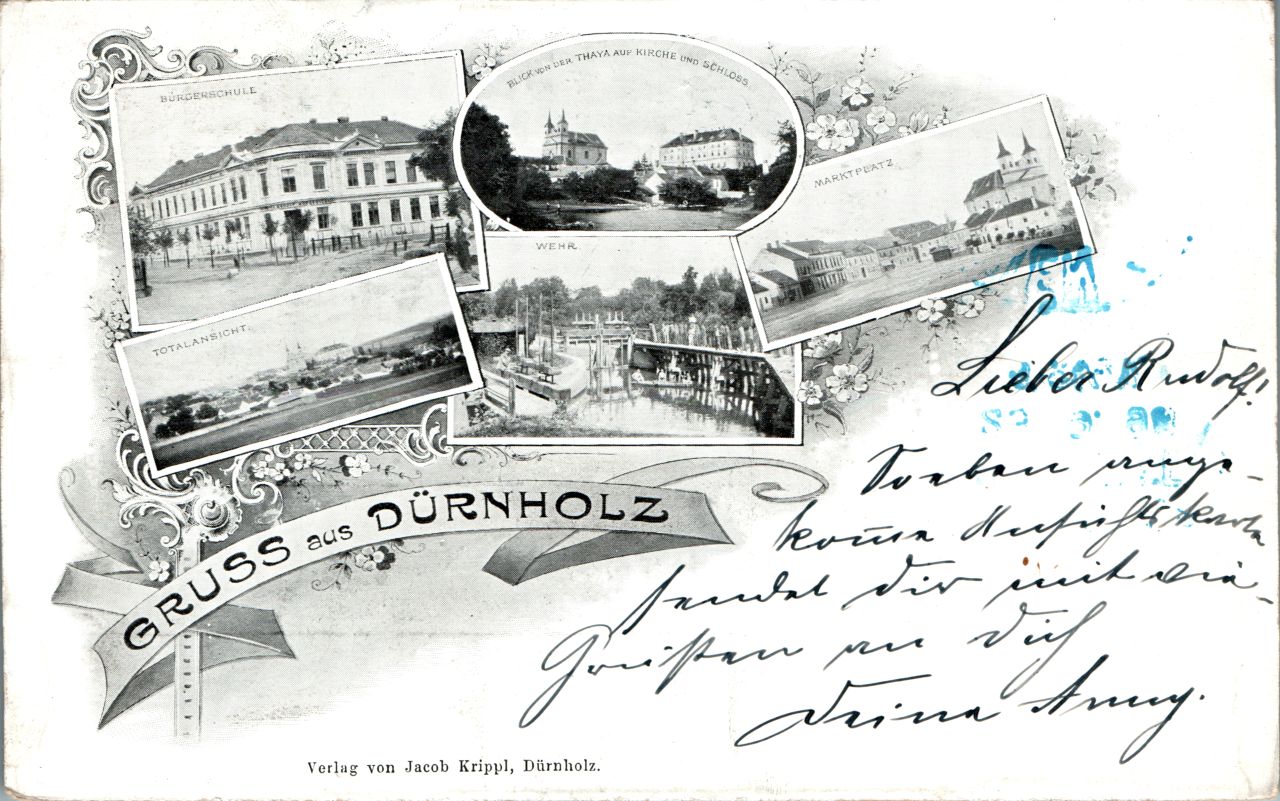 BÜRGERSCHULE
BLICK VON DER THAYA AUF KIRCHE UND SCHLOSS.
MARKTPLATZ.
WEHR.
TOTALANSICHT.
GRUSS aus DÜRNHOLZ
Lieber Rudolf!
Soeben ange-
kom̅ene Ansichtskarte
sendet dir mit
Grüßen an dich
Deine Anny.
Verlag von Jacob Krippl, Dürnholz.